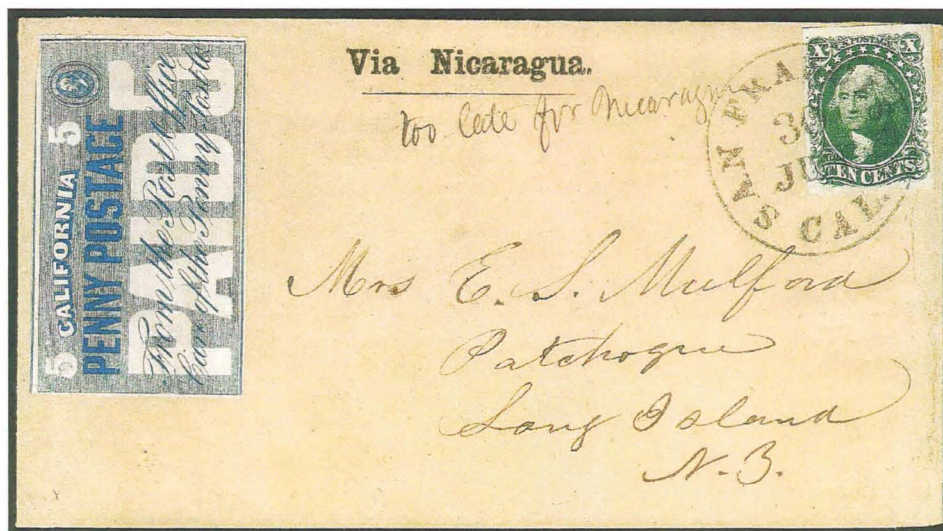 5 CALIFORNIA 5
PENNY POSTAGE
PAID 5
From the Post Office
Care of the Penny Postman
Via Nicaragua.
too late for Nicaragua
SAN FRAN
30
JU
CAL
X U.S. POSTAGE X
TEN CENTS
Mrs E. S. Mulford
Patchogue
Long Island
N. Y.